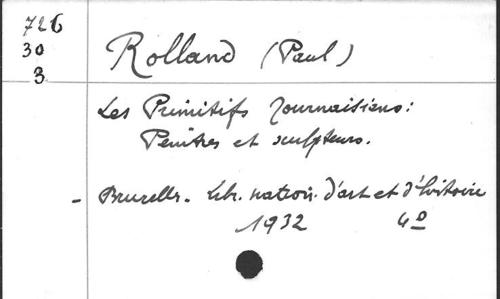 726
30
3
Rolland (Paul)
Les Primitifs Tournaisiens:
Peintres et sculpteurs.
- Bruxelles. Libr. nation. d'art et d'histoire
1932 4º